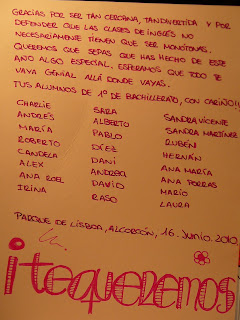 GRACIAS POR SER TAN CERCANA, TAN DIVERTIDA Y POR
DEFENDER QUE LAS CLASES DE INGLÉS NO
NECESARIAMENTE TIENEN QUE SER MONÓTONAS.
QUEREMOS QUE SEPAS QUE HAS HECHO DE ESTE
AÑO ALGO ESPECIAL. ESPERAMOS QUE TODO TE
VAYA GENIAL ALLÁ DONDE VAYAS.
TUS ALUMNOS DE 1º DE BACHILLERATO, CON CARIÑO!!
CHARLIE SARA SANDRA VICENTE
ANDRÉS ALBERTO SANDRA MARTÍNEZ
MARÍA PABLO RUBÉN
ROBERTO DÍEZ HERNÁN
CANDELA DANI ANA MARÍA
ALEX ANDREA ANA PORRAS
ANA ROEL DAVID MARIO
IRINA RASO LAURA
PARQUE DE LISBOA, ALCORCÓN, 16. JUNIO. 2010
¡TEQUEREMOS